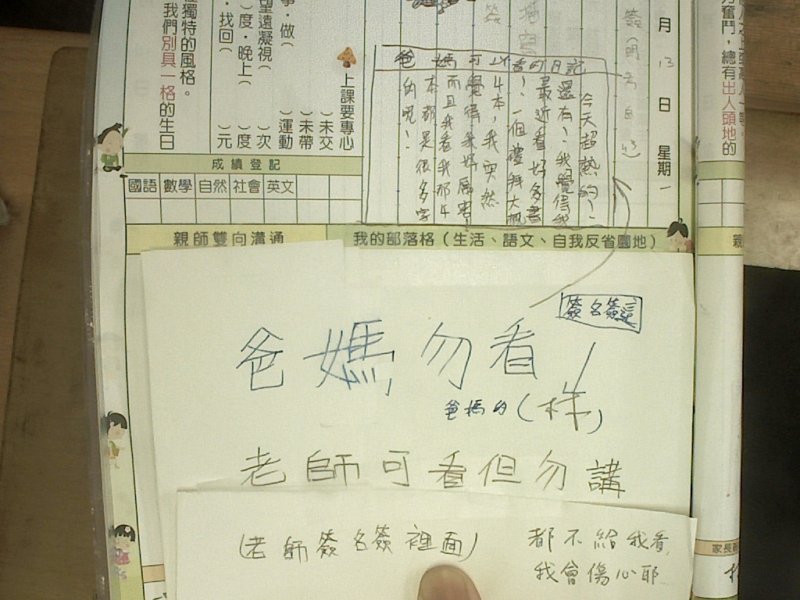 力奮鬥，總有出人頭地的
月 13 日 星期一
爸媽可以看的日記
今天超熱的!~
還有!~我覺得我
最近看好多書
!~一個禮拜大概
4本,我突然
覺得我好厲害
而且我看我那4
本都是很多字
的呢!~
上課要專心
)未交
)未帶
事·做( )運動
望遠凝視( )次
)度·晚上( )度
·找回( )元
獨特的風格。
我們別具一格的生日
成績登記
國語 數學 自然 社會 英文
親師雙向溝通
我的部落格(生活、語文、自我反省園地)
簽名簽這
爸媽勿看!
爸媽的(林)
老師可看但勿講
(老師簽名簽裡面)
都不給我看,
我會傷心耶